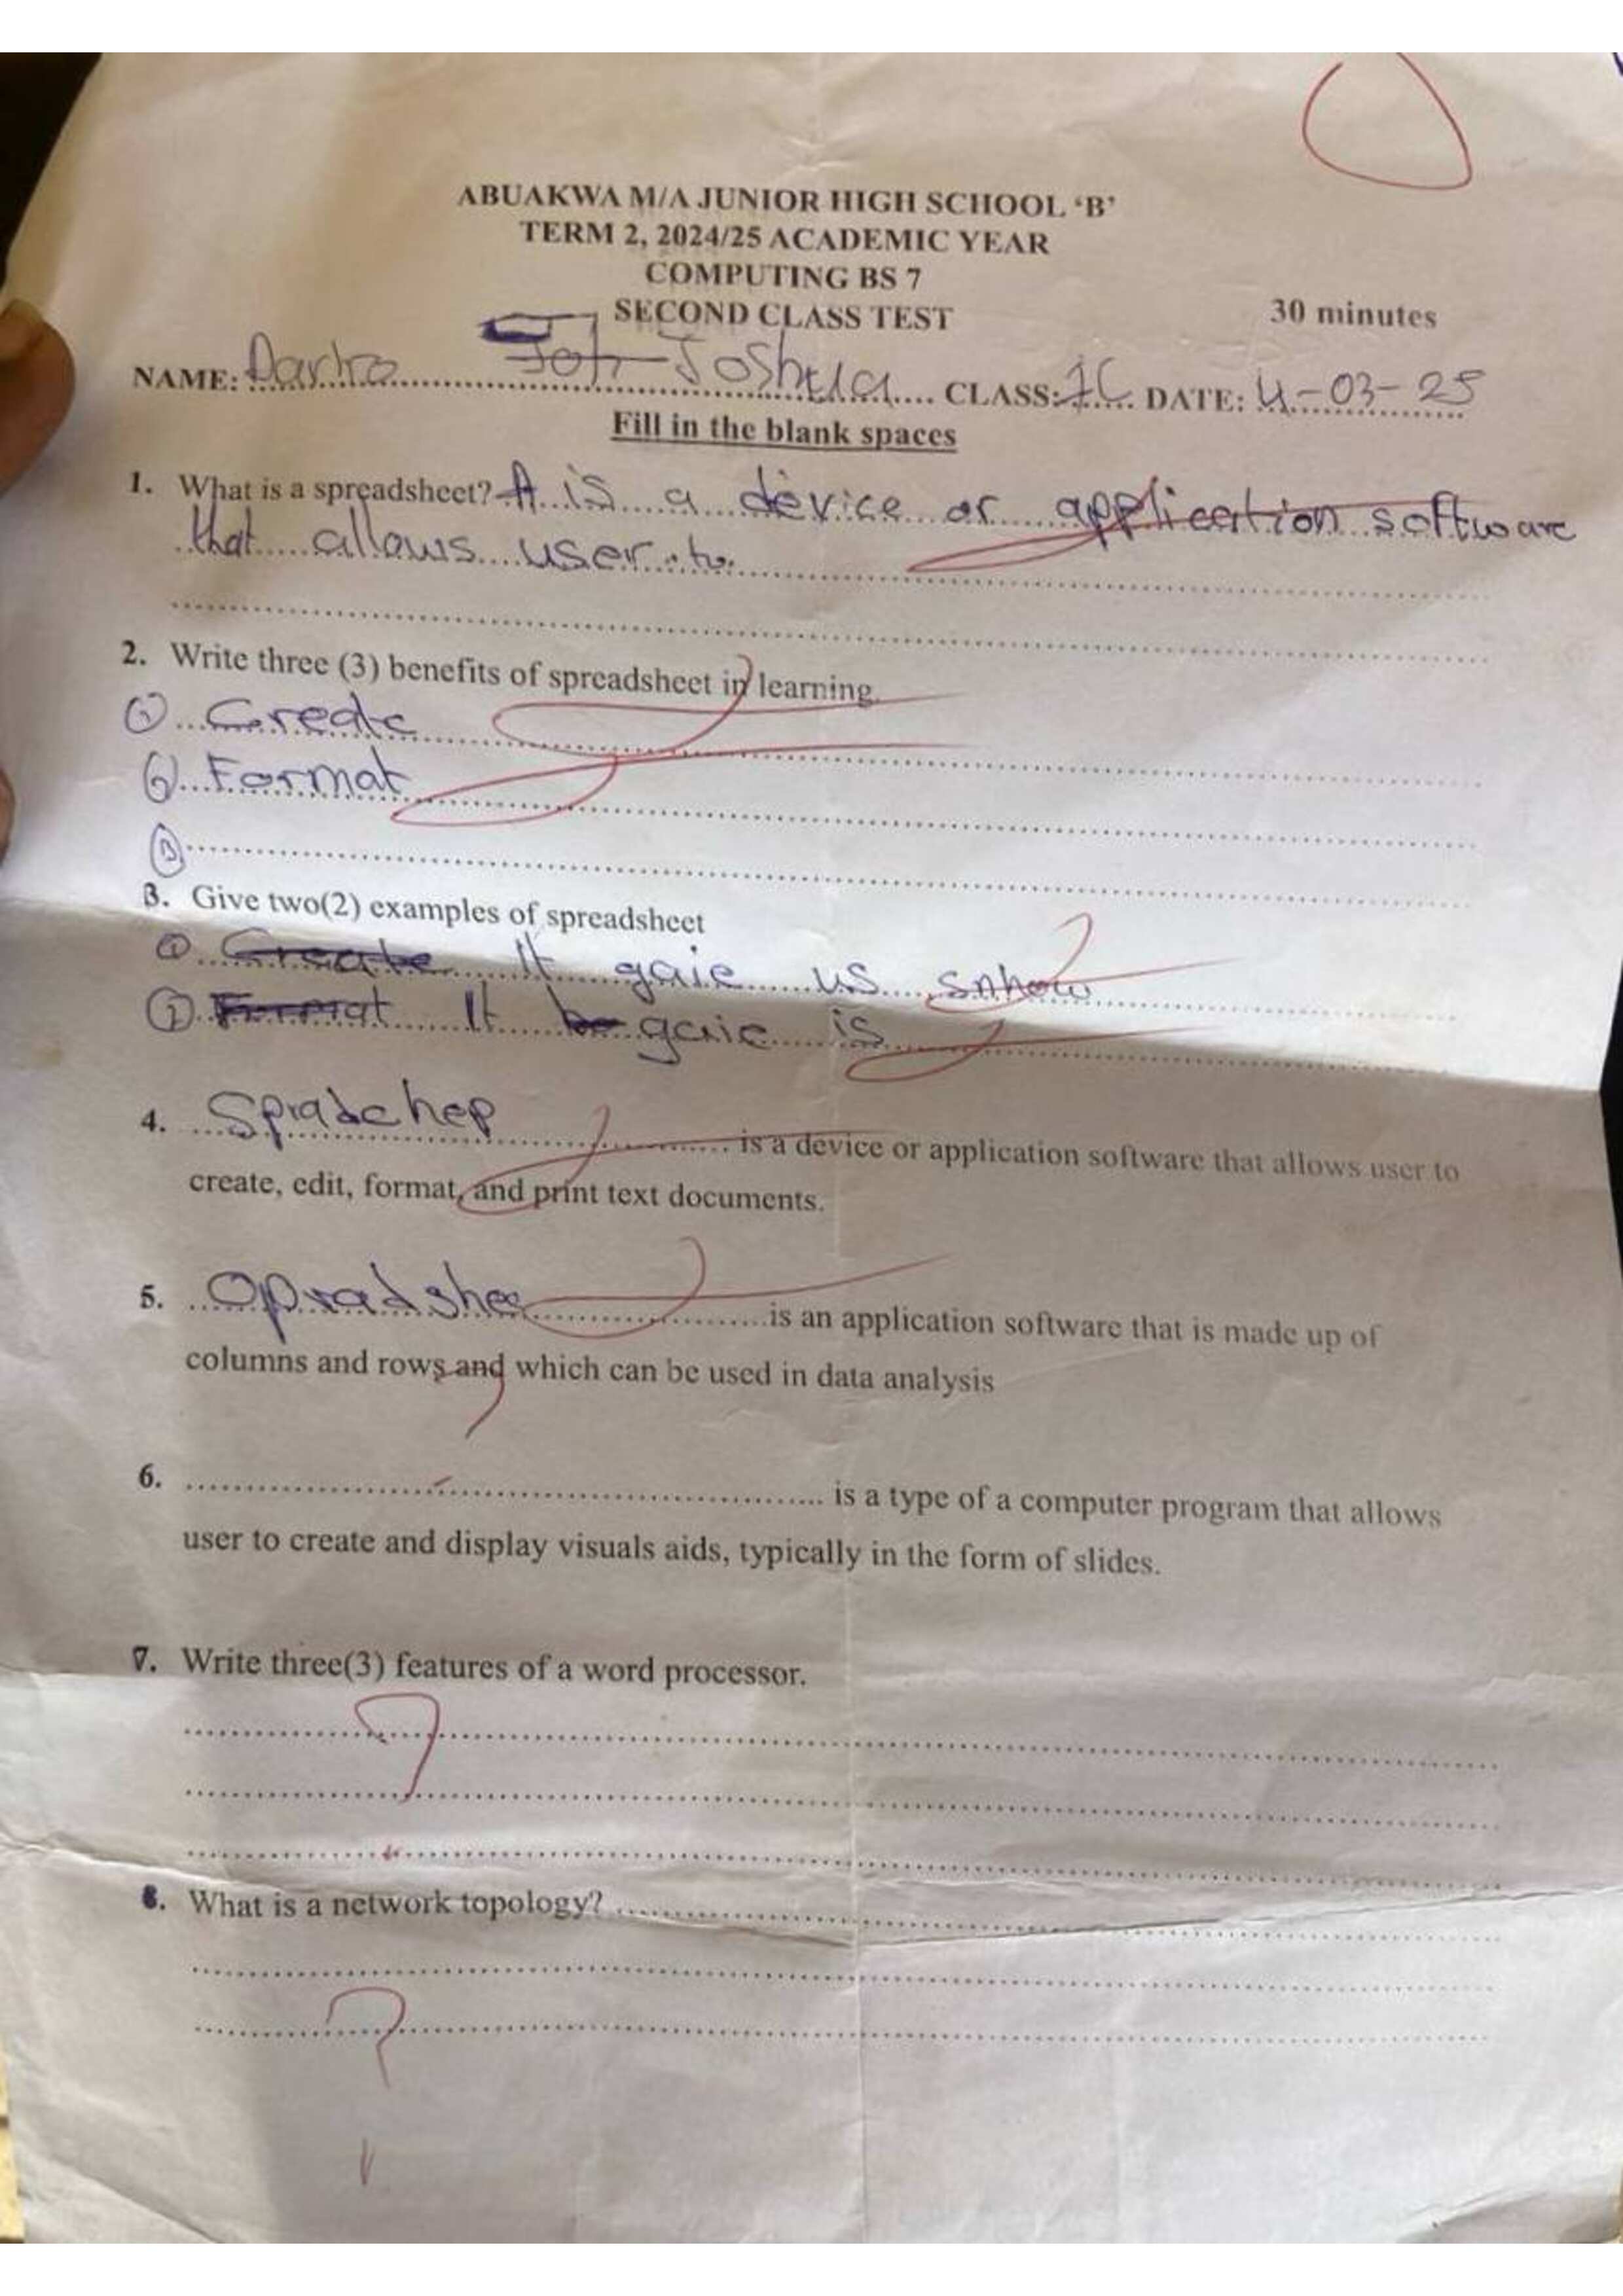 ABUAKWA M/A JUNIOR HIGH SCHOOL ‘B’
TERM 2, 2024/25 ACADEMIC YEAR
COMPUTING BS 7
SECOND CLASS TEST
30 minutes
NAME: Joshua CLASS: 7C DATE: 4-03-25
Fill in the blank spaces
1. What is a spreadsheet? It is a device or application software
that allows user to
2. Write three (3) benefits of spreadsheet in learning.
① Create
② Format
③
3. Give two(2) examples of spreadsheet
① Create It gaie us snhow
② Format It be gaie is
4. Spradchep is a device or application software that allows user to
create, edit, format, and print text documents.
5. Opradshee is an application software that is made up of
columns and rows and which can be used in data analysis
6. is a type of a computer program that allows
user to create and display visuals aids, typically in the form of slides.
7. Write three(3) features of a word processor.
8. What is a network topology?